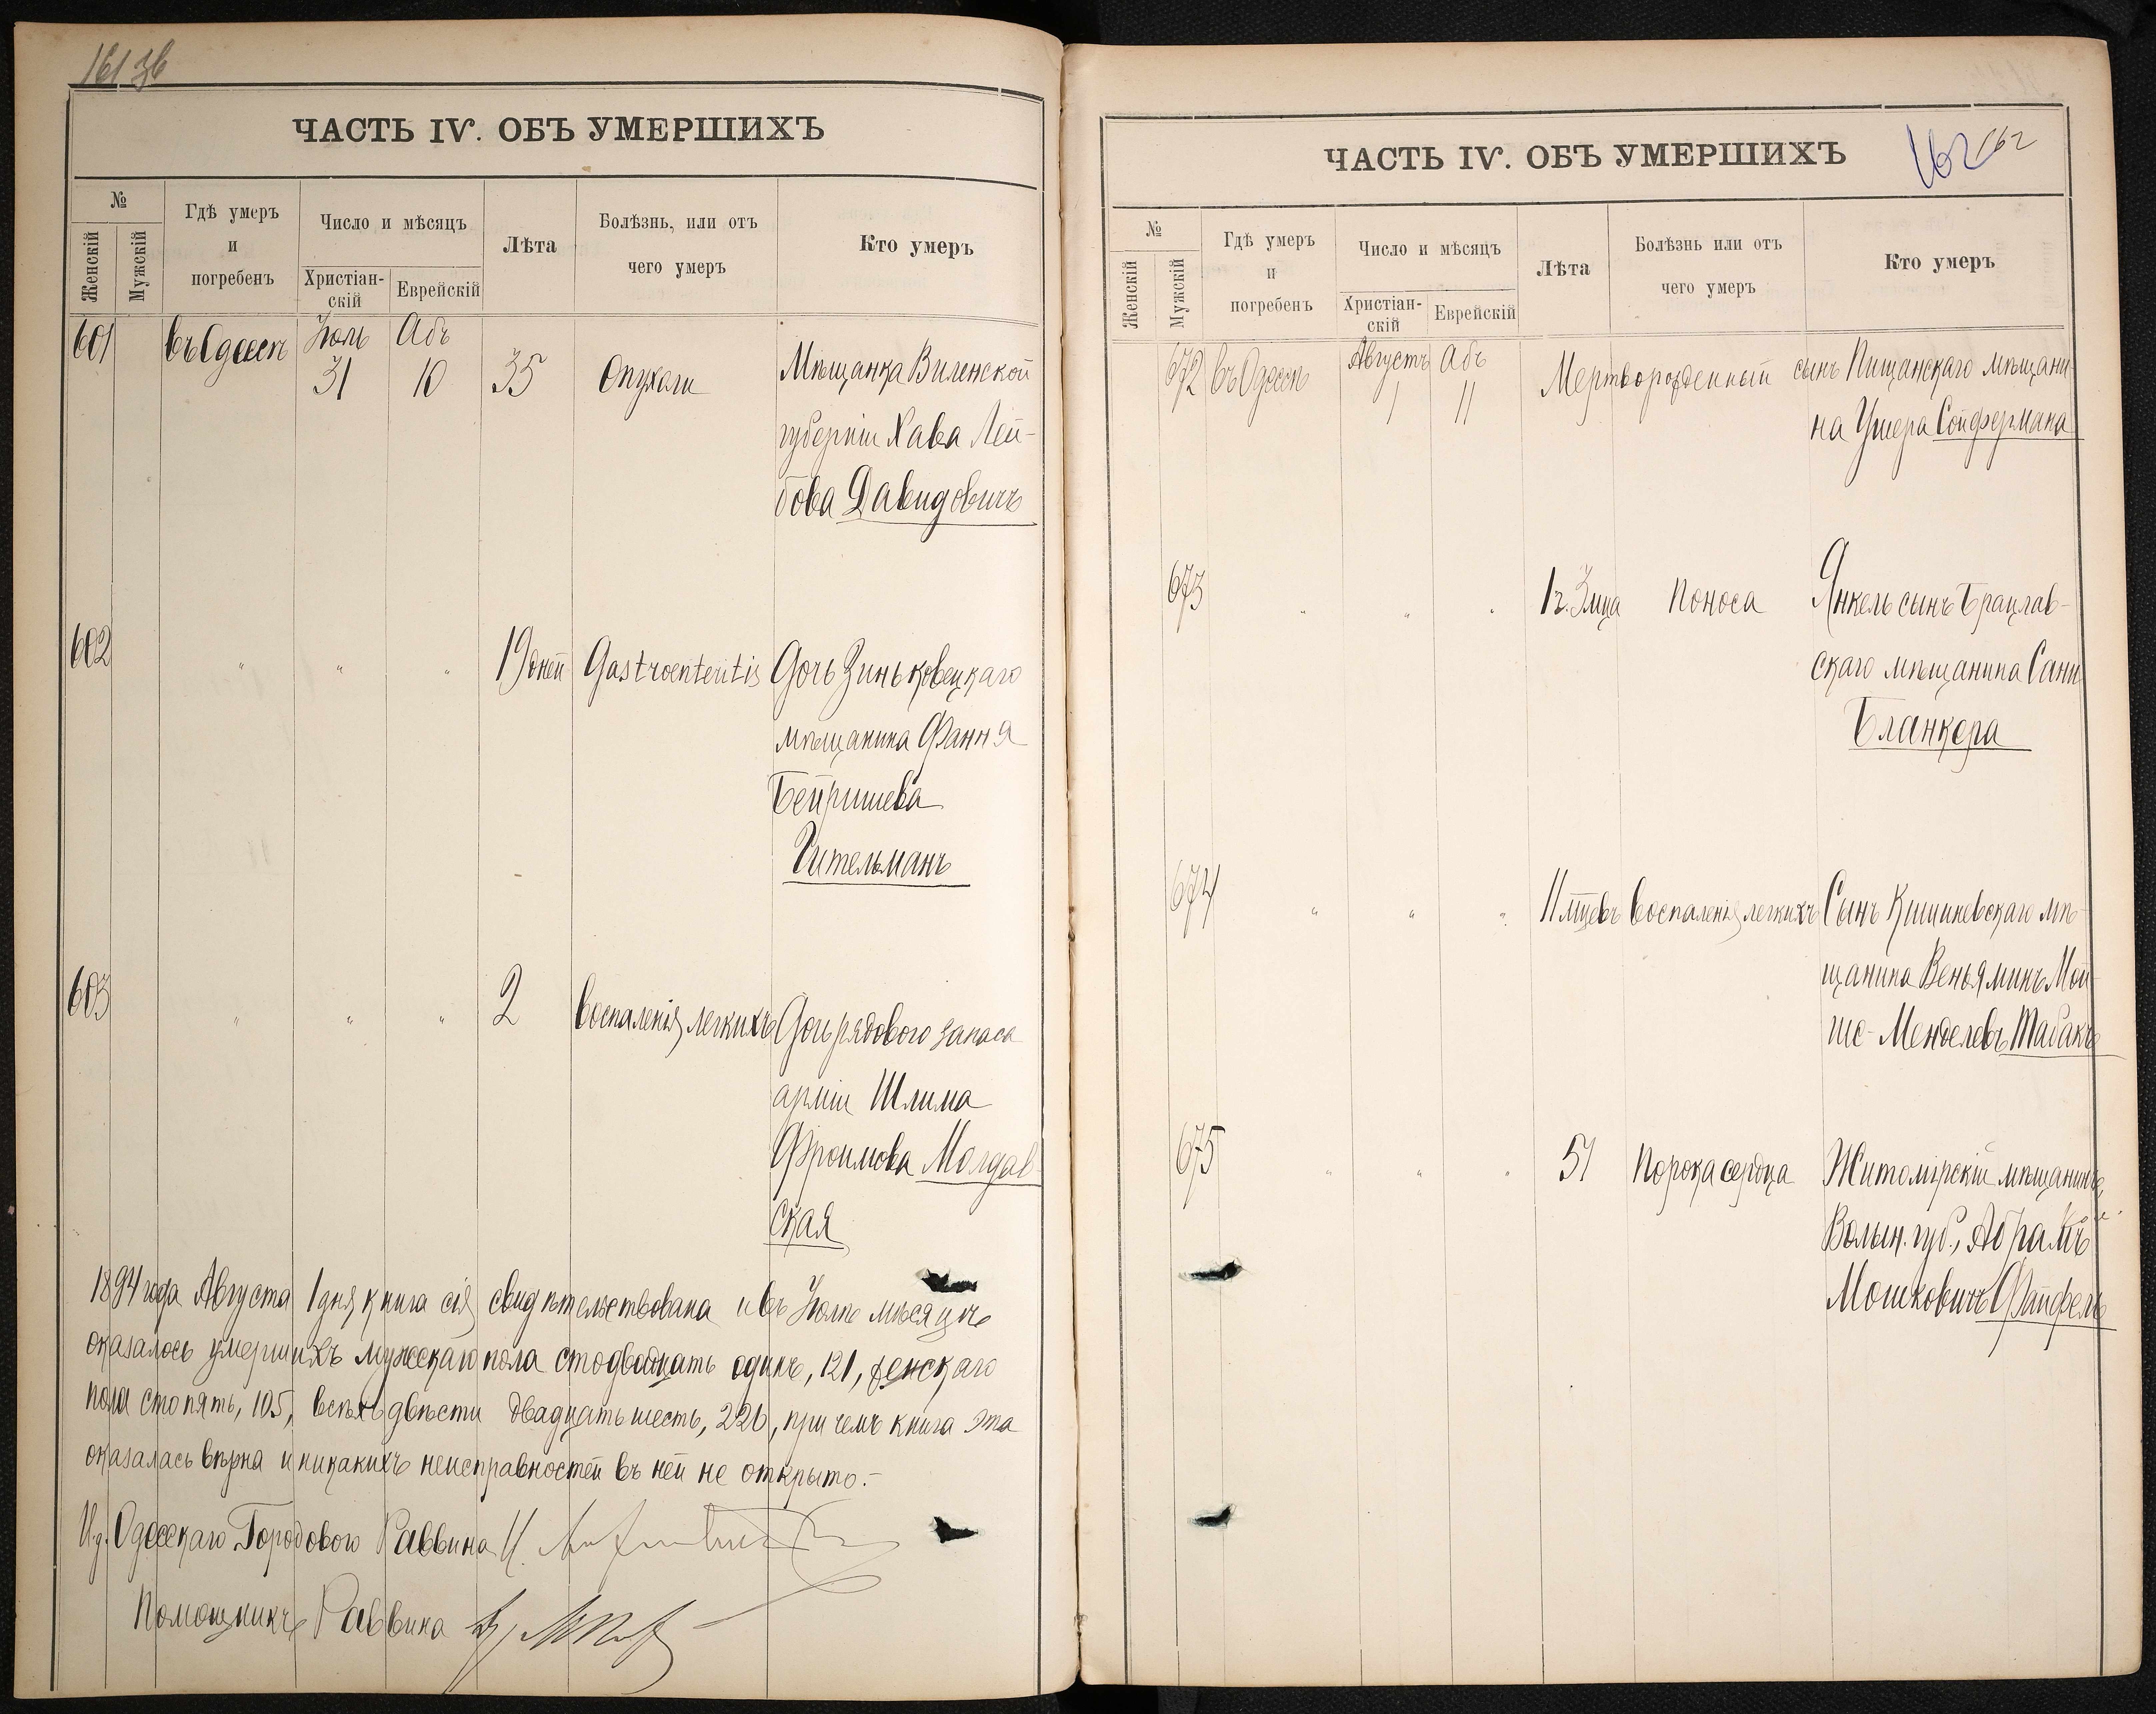 161 зв
ЧАСТЬ IV. ОБЪ УМЕРШИХЪ
№
Женскій
Мужскій
Гдѣ умеръ
и
погребенъ
Число и мѣсяцъ
Христіан-
скій
Еврейскій
Лѣта
Болѣзнь, или отъ
чего умеръ
Кто умеръ
601 въ Одессѣ Іюль Абъ
31 10 35 Опухоли Мѣщанка Виленской
губерніи Хава Лей-
бова Давидовичъ
602 " " " 19 дней Gastroenteritis Дочь Зиньковецкаго
мѣщанина Фання
Бейришева
Гительманъ
603 " " " 2 Воспаленія легкихъ Дочь рядового запаса
арміи Шлима
Фроимова Молдав-
ская
1894 года Августа 1 дня книга сія свидѣтельствована и въ Іюлѣ мѣсяцѣ
оказалось умершихъ мужескаго пола сто двадцать одинъ, 121, женскаго
пола сто пять, 105, всѣхъ двѣсти двадцать шесть, 226, при чемъ книга эта
оказалась вѣрна и никакихъ неисправностей въ ней не открыто.-
И.д. Одесскаго Городового Раввина
Помощникъ Раввина
162 162
ЧАСТЬ IV. ОБЪ УМЕРШИХЪ
№
Женскій
Мужскій
Гдѣ умеръ
и
погребенъ
Число и мѣсяцъ
Христіан-
скій
Еврейскій
Лѣта
Болѣзнь или отъ
чего умеръ
Кто умеръ
672 въ Одессѣ Августъ Абъ
1 11 Мертворожденный сынъ Пищанскаго мѣщани-
на Ушера Сойфермана
673 " " " 1 г. 3 мца Поноса Янкель сынъ Брацлав-
скаго мѣщанина Сани
Бланкера
674 " " " 11 мцевъ Воспаленія легкихъ Сынъ Кишиневскаго мѣ-
щанина Веньяминъ Мой-
ше-Менделевъ Табакъ
675 " " " 51 Порока сердца Житомірскій мѣщанинъ,
Волын. губ., Абрамъ
Мошковичъ Файфель